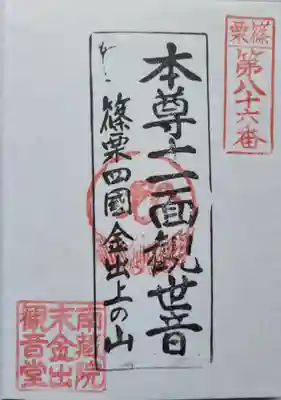 篠栗
第八十六番
本尊十一面観世音
篠栗四國金出上の山
南蔵院
末金出
観音堂